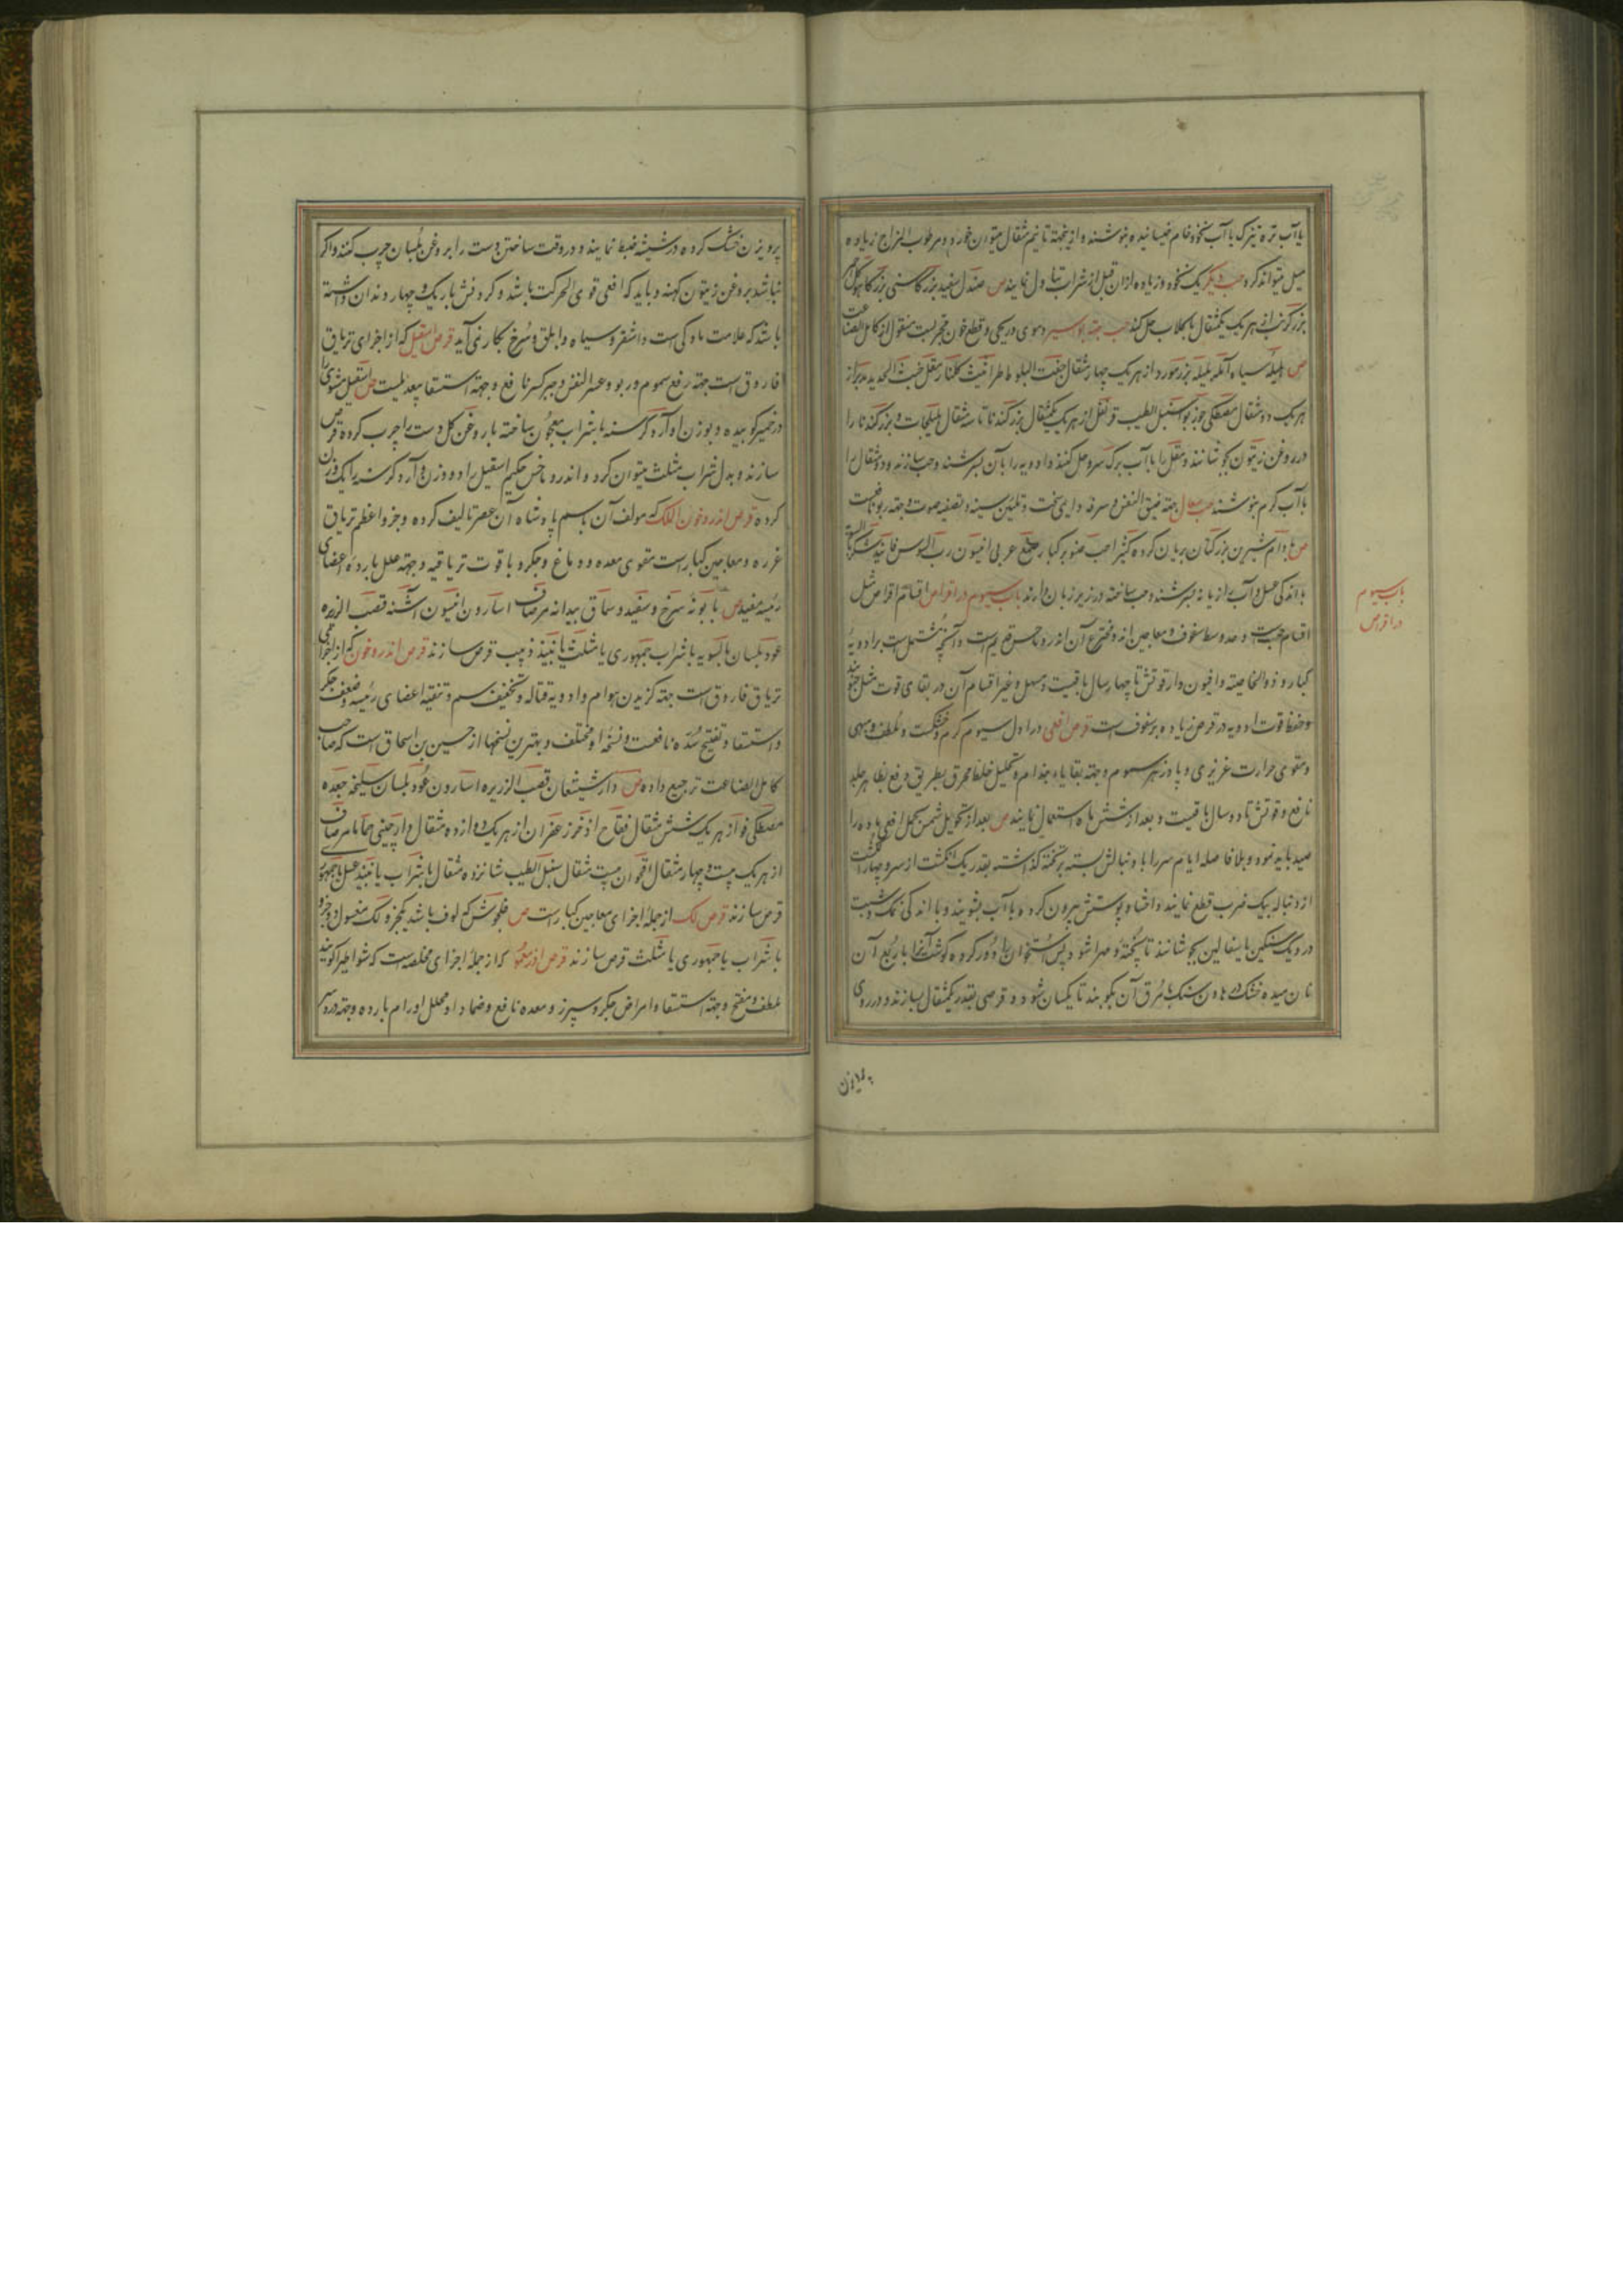 یا آب تره تیزک یا آب نخود خام خیسانیده بنوشند و ازینجهة تا نیم مثقال میتوان خورد و مرطوب المزاج زیاده
میل میتواند کرد حب دیگر یک نخود و زیاده از آن قبل از شراب تناول نمایند ص صندل سفید بزر کاسنی بزر کاهو کل
بزر کرنب از هر یک یکمثقال با کلاب حل کنند حب جهة بواسیر دموی و ریحی و قطع خون مجربست منقول از کامل الصناعت
ص هلیله سیاه آمله بلیله بزر مورد از هر یک چهار مثقال جفت البلوط طراثیث کلنار مقل خبث الحدید مدبر از
هر یک دو مثقال مصطکی جوز بوا سنبل الطیب قرنفل از هر یک یکمثقال بزر کندنا تا سه مثقال هلیلجات و بزر کندنا را
در روغن زیتون بجوشانند و مقل را با آب برک سرو حل کنند و ادویه را با آن بسرشند و حب سازند و دو مثقال را
با آب کرم بنوشند حب سعال جهة ضیق النفس و سرفه دایمی سخت و تلیین سینه و تصفیه صوت و جهة ربو نافعست
ص بادام شیرین بزر کتان بریان کرده کثیرا حب صنوبر کبار صمغ عربی انیسون رب السوس فانید شکر
با اندکی عسل و آب رازیانه بسرشند و حب ساخته در زیر زبان دارند باب سیوم در اقراص اقسام اقراص مثل
اقسام حب است و حد وسط سفوف و معاجین اند و مخترع آن اندروماخس قدیم است و آنچه مشتمل است بر ادویه
کبار و ذو الخاصیته و افیون دار قوتش تا چهار سال باقیست و مسهل و غیر اقسام آن در بقای قوت مثل حبوبند
و حفظ قوت ادویه در قرص زیاده بر سفوف است قرص افعی در اول سیوم کرم و خشکست و ملطف و مبهی
و مقوی حرارت غریزی و پادزهر سموم و جهة بقایاء جذام و تحلیل خلط محرق بطریق دفع بظاهر جلد
نافع و قوتش تا دو سال باقیست و بعد از شش ماه استعمال نمایند ص بعد از تحویل شمس بحمل افعی ماده را
صید باید نمود و بلا فاصله ایام سر را با دنبالش بسته بر تخته کذاشته بقدر یک انکشت از سر و چهار انکشت
از دنباله بیک ضرب قطع نمایند و احشاء و پوستش بیرون کرده و با آب بشویند و با اندکی نمک و شبت
در دیک سنکین یا سفالین بجوشانند تا پخته و مهرا شود پس استخوان را دور کرده کوشت آنرا با ربع آن
نان میده خشک در هاون سنک با مرق آن بکوبند تا یکسان شود و قرصی بقدر یکمثقال بسازند و در روی
باب سیوم
در اقراص
پرویزن خشک کرده در شیشه ضبط نمایند و در وقت ساختن دست را بروغن بلسان چرب کنند و اکر
نباشد بروغن زیتون کهنه و باید که افعی قوی الحرکت باشد و کردنش باریک و چهار دندان داشته
باشد که علامت مادکی است و اشقر و سیاه و ابلق و سرخ بکار نمی آید قرص اسقیل که از اجزای تریاق
فاروق است جهة رفع سموم و ربو و عسر النفس و جبر کسر نافع و جهة استسقا بیعدیلست ص اسقیل مشوی را
در خمیر کوبیده و بوزن او آرد کرسنه با شراب معجون ساخته با روغن کل دست را چرب کرده قرص
سازند و بدل شراب مثلث میتوان کرد و اندروماخس حکیم اسقیل را دو وزن و آرد کرسنه را یک وزن
کرده قرص اندروخون الملک که مولف آن باسم پادشاه آن عصر تالیف کرده و جزو اعظم تریاق
غرره و معاجین کبار است مقوی معده و دماغ و جکر و با قوت تریاقیه و جهة علل بارده اعضای
رئیسه مفید ص بابونه سرخ و سفید و سماق بیدانه مرصاف اسارون انیسون اشنه قصب الزریره
عود بلسان بالسویه با شراب جمهوری یا مثلث یا نبیذ زبیب قرص سازند قرص اندروخون که از اجزای
تریاق فاروق است جهة کزیدن هوام و ادویه قتاله و تخفیف سم و تنقیه اعضای رئیسه و ضعف جکر
و استسقا و تفتیح سده نافعست و نسخها و مختلف و بهترین نسخها از حسین بن اسحاق است که صاحب
کامل الصناعت ترجیح داده ص دارشیشعان قصب الزریره اسارون عود بلسان سلیخه جعده
مصطکی فو از هر یک شش مثقال فقاح اذخر زعفران از هر یک دوازده مثقال دارچینی حماما مرصاف
از هر یک بیست و چهار مثقال اقحوان بیست مثقال سنبل الطیب شانزده مثقال با شراب یا نبیذ عسل یا جمهوری
قرص سازند قرص لک از جمله اجزای معاجین کبار است ص فلجوش که لوف باشد یکجزو لک مغسول دو جزو
با شراب یا جمهوری یا مثلث قرص سازند قرص که از جمله اجزای مخلصه است که شوا طیرا کویند
ملطف و مفتح و جهة استسقا و امراض جکر و سپرز و معده نافع و ضماد او محلل اورام بارده و جهة درد سر
پرویزن